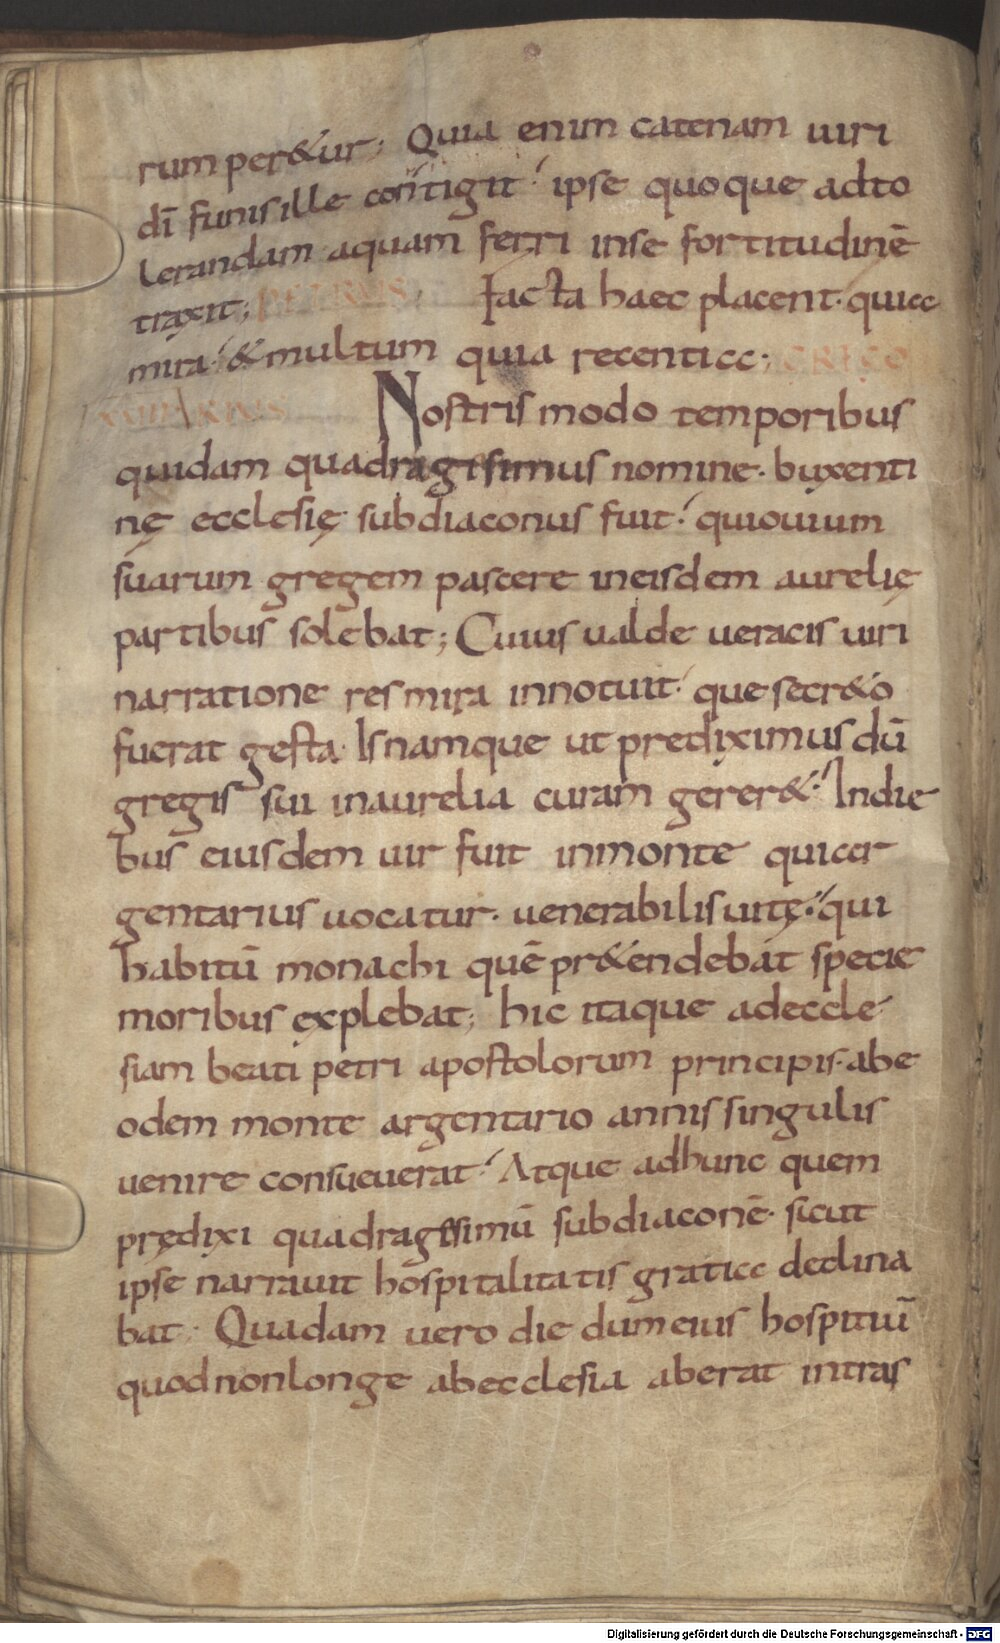 rumper&ur; Quia enim catenam uiri
dī funis ille contigit; ipse quoque adto
lerandam aquam ferri inse fortitudinē
traxit; PETRUS; Facta haec placent. quia
mira. & multum quia recentia; GREGO
XXIIII RIUS Nostris modo temporibus
quidam quadragisimus nomine. buxenti
nę ecclesię subdiaconus fuit; qui ouium
suarum gregem pascere ineisdem aurelię
partibus solebat; Cuius ualde ueracis uiri
narratione res mira innotuit. que secr&o
fuerat gesta. Is namque ut prediximus dū
gregis sui inaurelia curam gerer&; Indie
bus eiusdem uir fuit inmonte qui ar
gentarius uocatur. uenerabilis uitę; qui
habitū monachi quē pr&endebat specie
moribus explebat; hic itaque adeccle
siam beati petri apostolorum principis. abe
odem monte argentario annis singulis
uenire consueuerat; Atque adhunc quem
prędixi quadragesimū subdiaconē. sicut
ipse narrauit hospitalitatis gratia declina
bat. Quadam uero die dum eius hospitiū
quod non longe abecclesia aberat intras
Digitalisierung gefördert durch die Deutsche Forschungsgemeinschaft - DFG